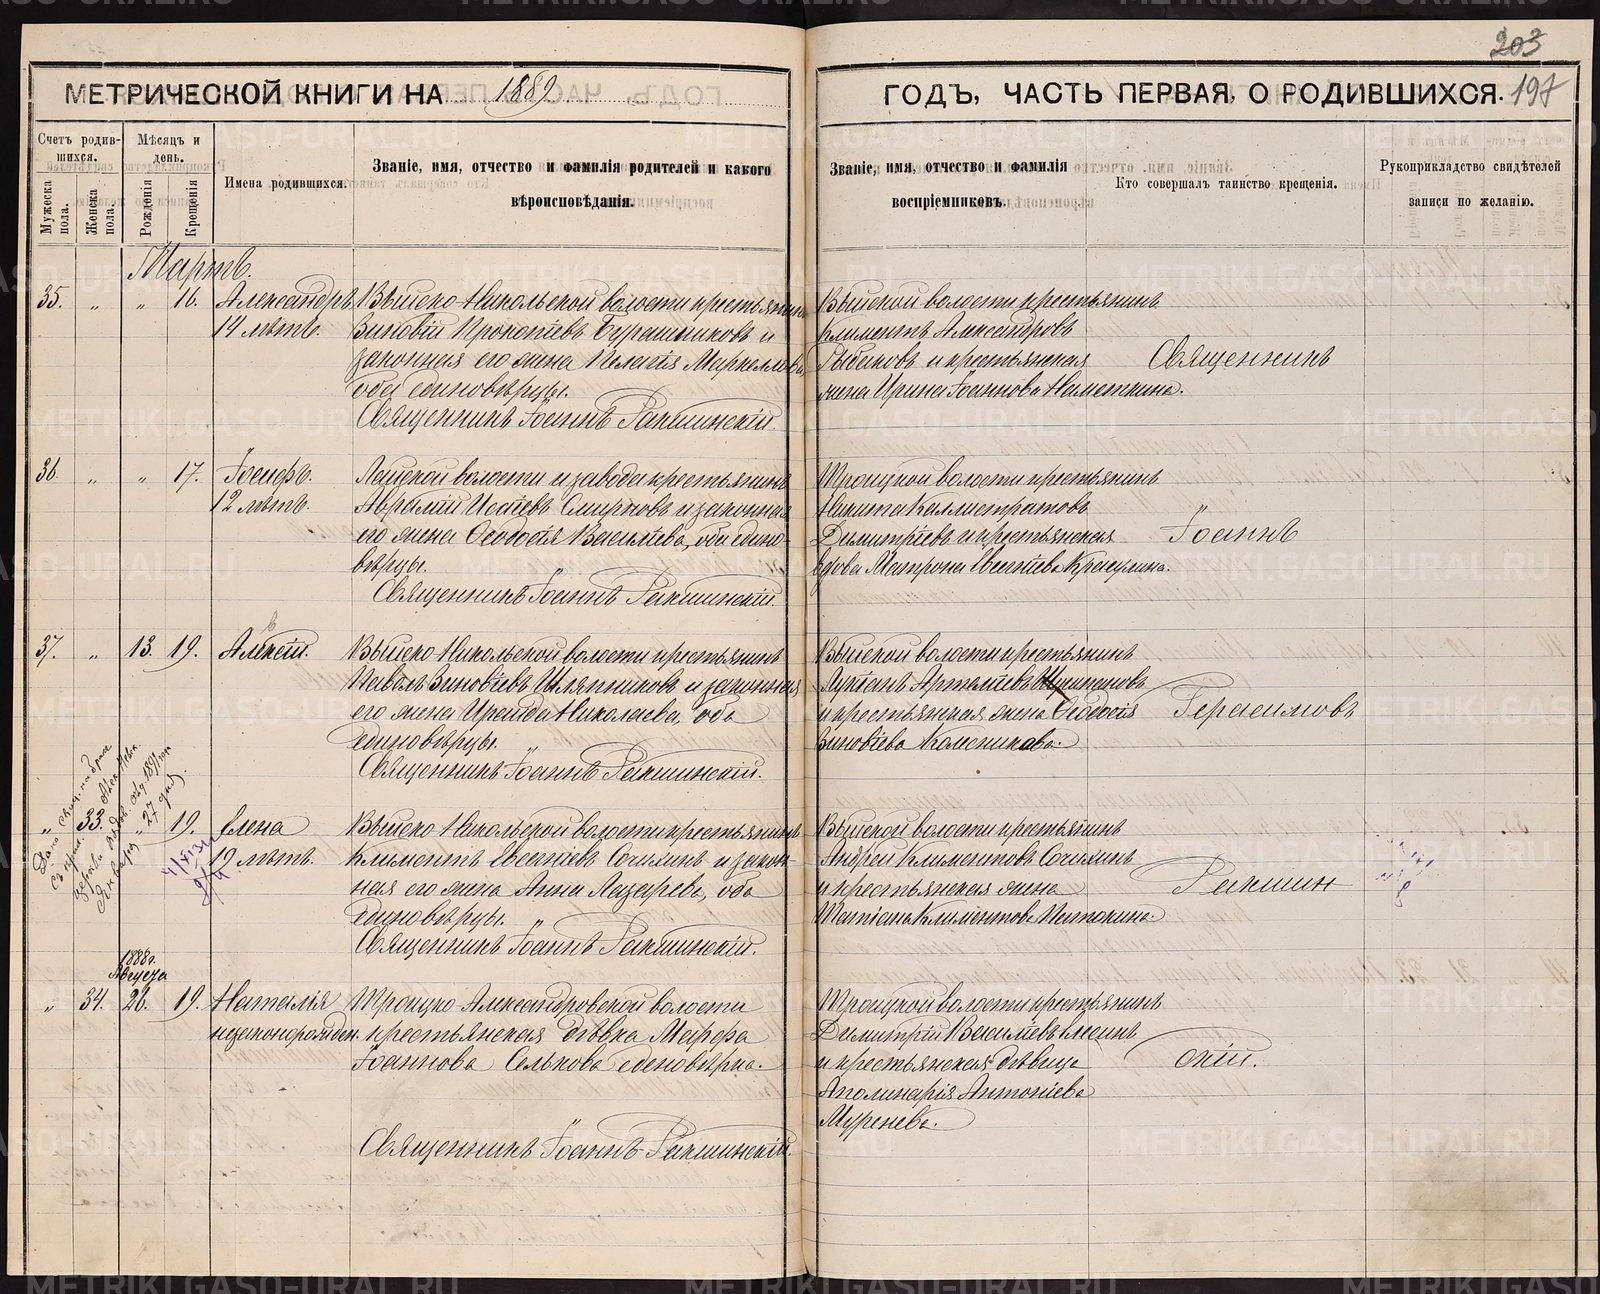 203
МЕТРИЧЕСКОЙ КНИГИ НА 1889
ГОДЪ, ЧАСТЬ ПЕРВАЯ, О РОДИВШИХСЯ. 197
Счетъ родив-
шихся.
Мужеска пола.
Женска пола.
Мѣсяцъ и день.
Рожденія
Крещенія
Имена родившихся.
Званіе, имя, отчество и фамилія родителей и какого
вѣроисповѣданія.
Званіе, имя, отчество и фамилія
воспріемниковъ.
Кто совершалъ таинство крещенія.
Рукоприкладство свидѣтелей
записи по желанію.
Мартъ.
35. „ „ 16. Александръ
14 лѣтъ.
Выйско-Никольской волости крестьянинъ
Зиновій Прокопіевъ Бурашниковъ и
законная его жена Пелагія Маркеллова
оба единовѣрцы.
Священникъ Іоаннъ Ракшинскій.
Выйской волости крестьянинъ
Климентъ Александровъ
Рыбаковъ и крестьянская
жена Ирина Іоаннова Наметкина.
Священникъ
36. „ „ 17. Іосифъ.
12 лѣтъ.
Лайской волости и завода крестьянинъ
Аврамій Исаіевъ Смирновъ и законная
его жена Ѳеодосія Васильева, оба едино-
вѣрцы.
Священникъ Іоаннъ Ракшинскій.
Троицкой волости крестьянинъ
Никита Каллистратовъ
Димитріевъ и крестьянская
вдова Матрона Евсигніева Красулина.
Іоаннъ
37. „ 13. 19. Алексій.
Выйско-Никольской волости крестьянинъ
Павелъ Зиновіевъ Шляпниковъ и законная
его жена Ираида Николаева, оба
единовѣрцы.
Священникъ Іоаннъ Ракшинскій.
Выйской волости крестьянинъ
Лукіанъ Артеміевъ
и крестьянская жена Ѳеодосія
Зиновіева Колесникова.
Герасимовъ
„ 33. „ 19. Елена
19 лѣтъ.
27
Выйско Никольской волости крестьянинъ
Климентъ Евсигніевъ Сочихинъ и закон-
ная его жена Анна Лазарева, оба
единовѣрцы.
Священникъ Іоаннъ Ракшинскій.
Выйской волости крестьянинъ
Андрей Климентовъ Сочихинъ
и крестьянская жена
Татіана Климентова Питохина.
Ракшин
1888г.
Августа
„ 34. 26. 19. Наталія
незаконорожден.
Троицко-Александровской волости
крестьянская дѣвка Марфа
Іоаннова Селькова единовѣрка.
Священникъ Іоаннъ Ракшинскій.
Троицкой волости крестьянинъ
Димитрій Васильевъ
и крестьянская дѣвица
Аполинарія Антоніева
Муренева.
скій.